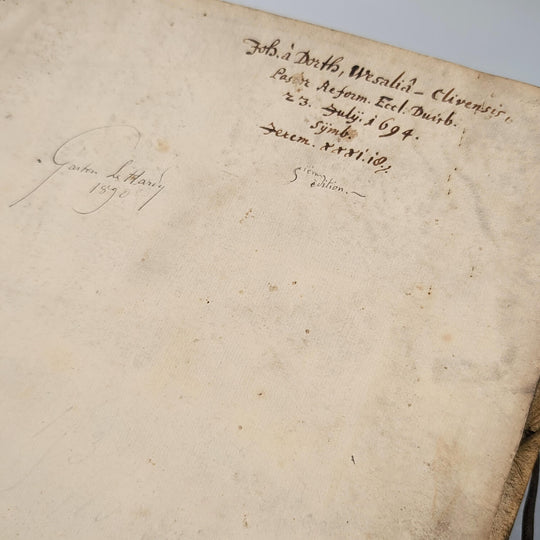 Joh. à Dorth, Wesaliâ - Clivensis,
Past Reform. Eccl. Duisb.
23. Julÿ. 1694.
Sÿmb.
Jerem. XXXI. 18.
Gaston Le Hardy
1890
5ième édition. -